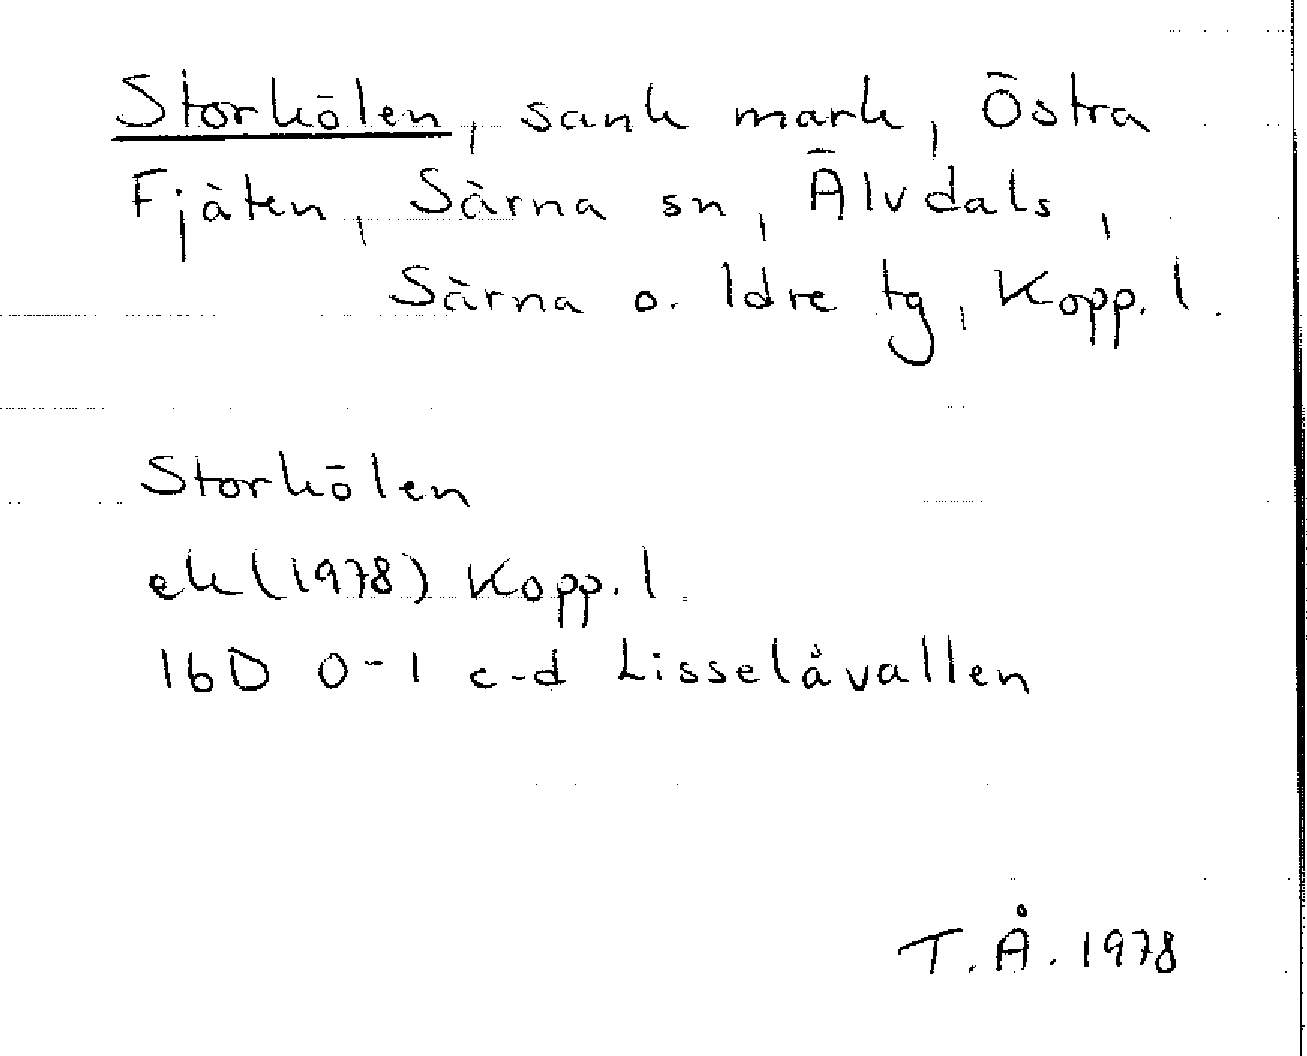 Storkölen, sank mark, Östra
Fjäten, Särna sn, Älvdals,
Särna o. Idre tg, Kopp. l.
Storkölen
ek (1978) Kopp. l.
16D 0-1 c-d Lisselåvallen
T.Å. 1978